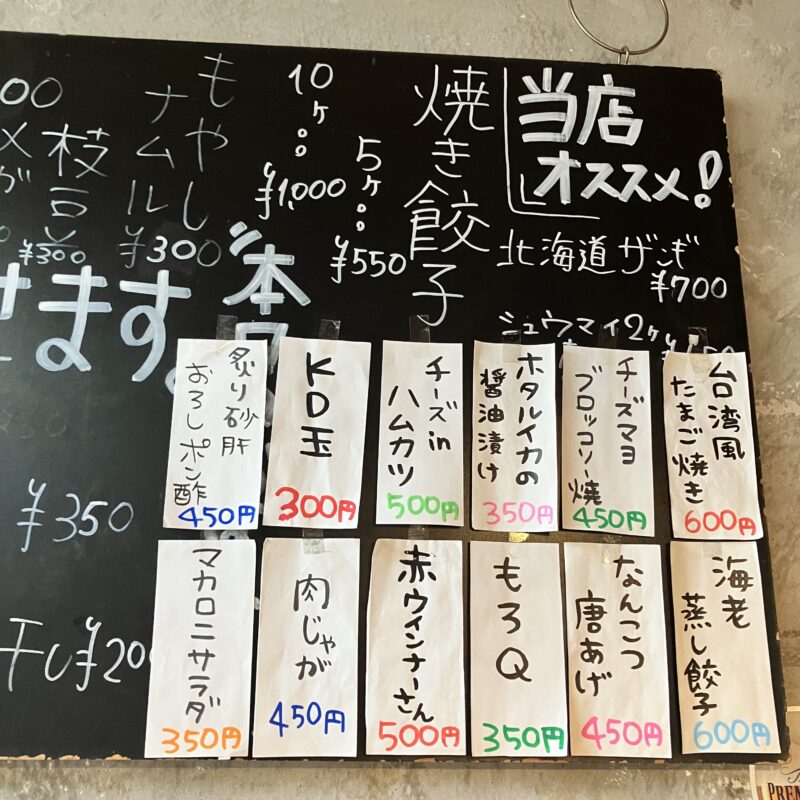 当店
オススメ!
北海道ザンギ
¥700
シュウマイ2ケ
焼き餃子
5ケ
¥550
10ケ
¥1,000
もやし
ナムル
¥300
枝豆
¥300
00
せます。
¥350
干し¥200
台湾風
たまご焼き
600円
チーズマヨ
ブロッコリー焼
450円
ホタルイカの
醤油漬け
350円
チーズin
ハムカツ
500円
KD玉
300円
炙り砂肝
おろしポン酢
450円
海老
蒸し餃子
600円
なんこつ
唐あげ
450円
もろQ
350円
赤ウインナーさん
500円
肉じゃが
450円
マカロニサラダ
350円